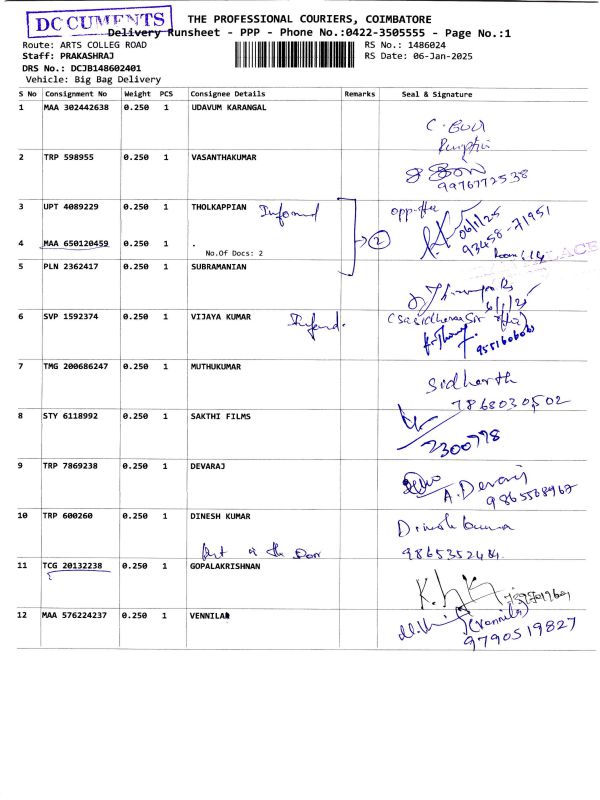 DOCUMENTS
THE PROFESSIONAL COURIERS, COIMBATORE
Delivery Runsheet - PPP - Phone No.:0422-3505555 - Page No.:1
Route: ARTS COLLEG ROAD RS No.: 1486024
Staff: PRAKASHRAJ RS Date: 06-Jan-2025
DRS No.: DCJB148602401
Vehicle: Big Bag Delivery
S No Consignment No Weight PCS Consignee Details Remarks Seal & Signature
1 MAA 302442638 0.250 1 UDAVUM KARANGAL
2 TRP 598955 0.250 1 VASANTHAKUMAR
9976772538
3 UPT 4089229 0.250 1 THOLKAPPIAN Informd
06/1/25
93458-71951
4 MAA 650120459 0.250 1 .
No.Of Docs: 2
2
5 PLN 2362417 0.250 1 SUBRAMANIAN
6 SVP 1592374 0.250 1 VIJAYA KUMAR
7 TMG 200686247 0.250 1 MUTHUKUMAR
Sidharth
7868030502
8 STY 6118992 0.250 1 SAKTHI FILMS
2300778
9 TRP 7869238 0.250 1 DEVARAJ
A. Devaraj
9865568967
10 TRP 600260 0.250 1 DINESH KUMAR
Dinesh kumar
9865352484
11 TCG 20132238 0.250 1 GOPALAKRISHNAN
12 MAA 576224237 0.250 1 VENNILA
(Vennila)
9790519827